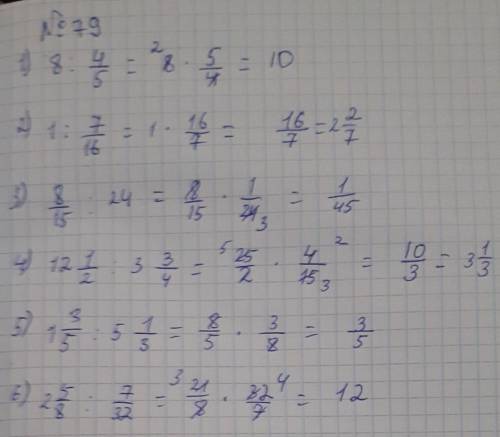 № 79
1) 8 : 4/5 = ²8 · 5/4 = 10
2) 1 : 7/16 = 1 · 16/7 = 16/7 = 2 2/7
3) 8/15 : 24 = 8/15 · 1/24 ₃ = 1/45
4) 12 1/2 : 3 3/4 = ⁵25/2 · 4²/15₃ = 10/3 = 3 1/3
5) 1 3/5 : 5 1/3 = 8/5 · 3/8 = 3/5
6) 2 5/8 : 7/32 = ³21/8 · 32⁴/7 = 12